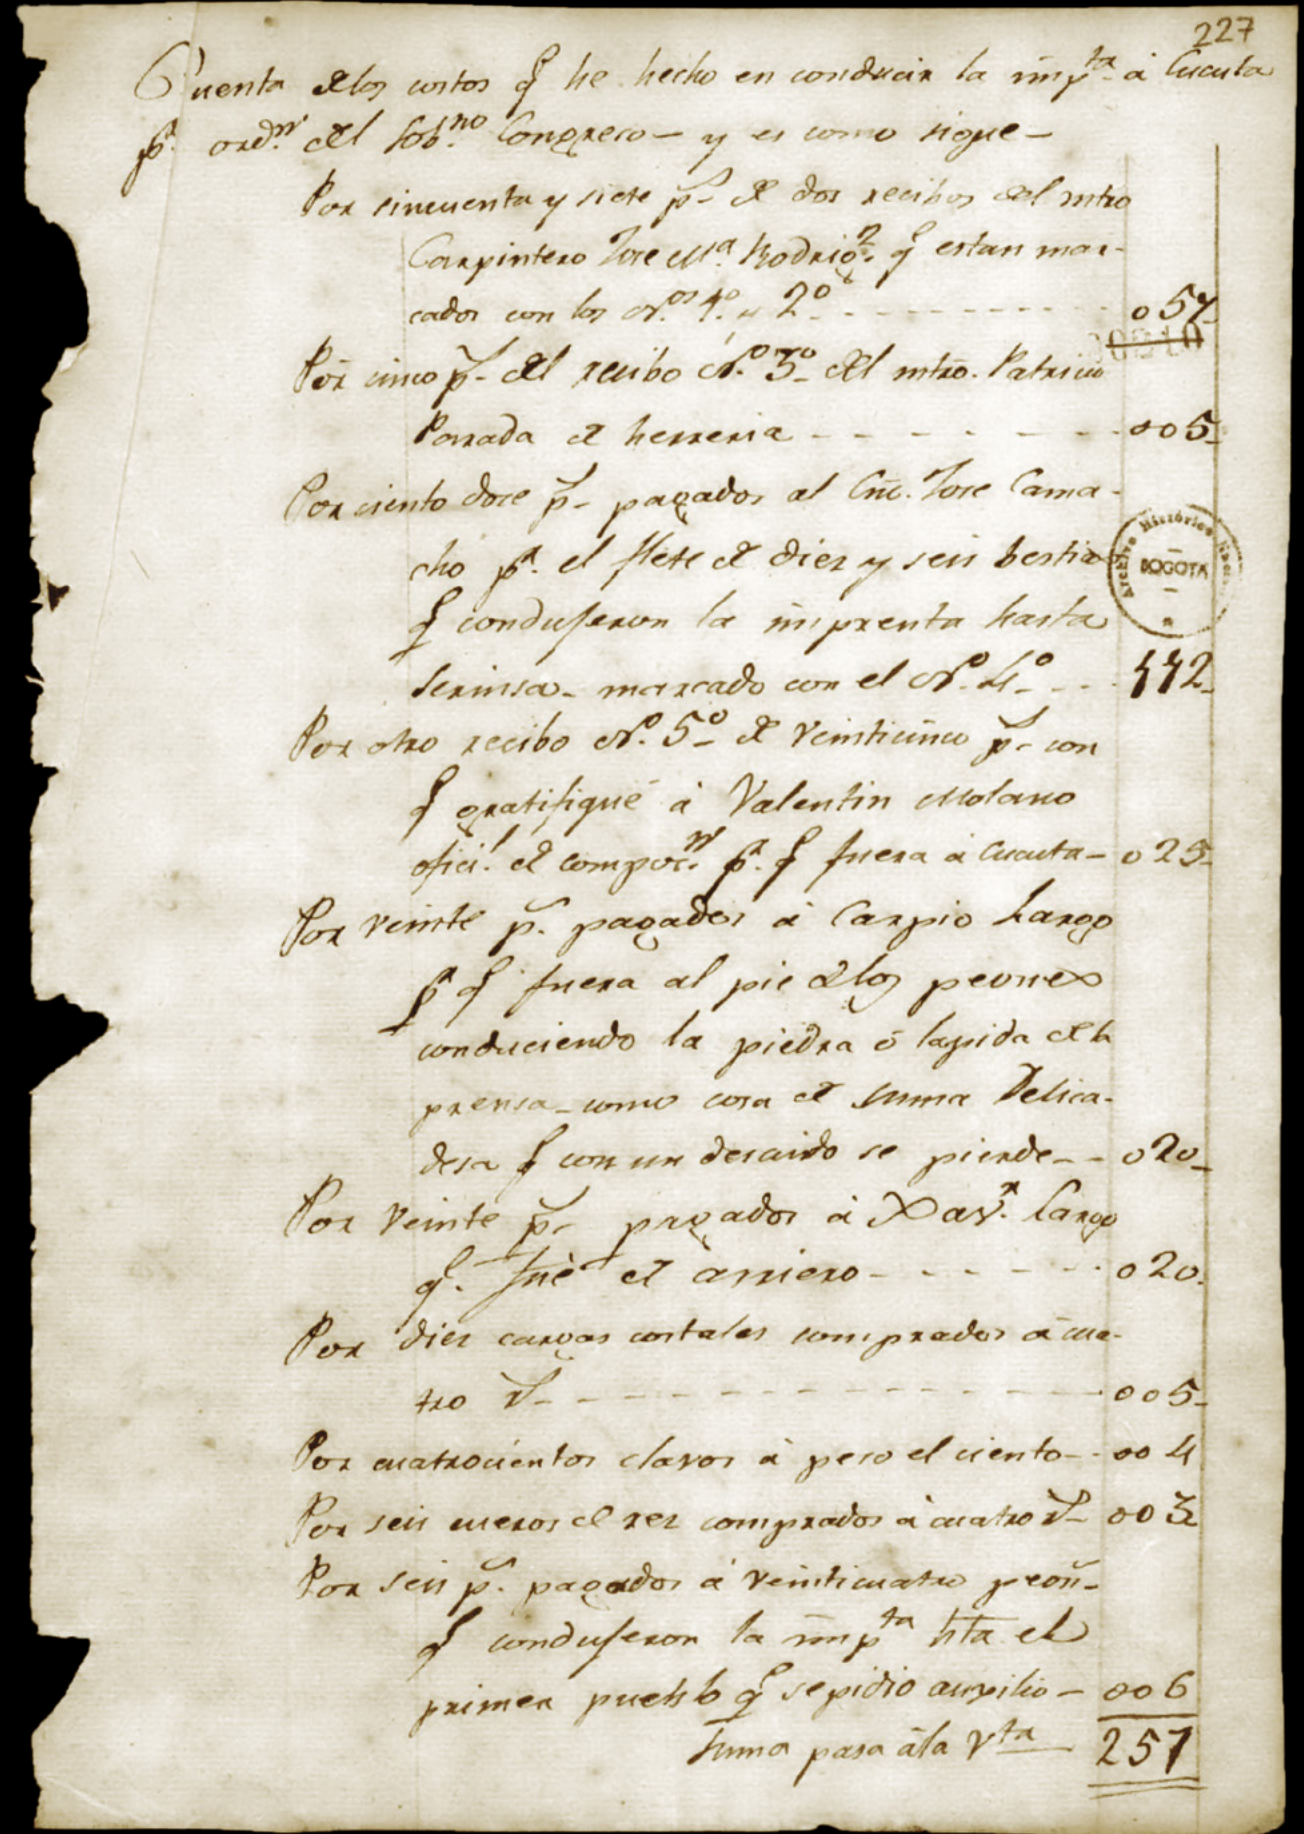 227
Cuenta de los costos q he hecho en conducir la impta a Cucuta
pr ordn del Sobno Congreso - y es como sigue -
Por sincuenta y siete ps de dos recibos del mtro
Carpintero Jose Ma Rodrigz q estan mar-
cados con los Nos 1o y 2o - - - 057
Por cinco ps del recibo No 3o del mtro. Patricio
Posada de herreria - - - 005
Por ciento dose ps pagados al Ciu. Jose Cama-
cho pr el flete de diez y seis bestias
q condujeron la imprenta hasta
Serinsa - marcado con el No 4o - - 112
Por otro recibo No 5o de veinticinco ps con
q gratifiqué á Valentin Molano
ofici.l de composn pa q fuera á Cucuta - 025
Por veinte ps pagados á Carpio Largo
pa q fuera al pie de los peones
conduciendo la piedra ó lapida de la
prensa - como cosa de suma delica-
desa q con un descuido se pierde - - 020
Por veinte ps pagados á Xavr Largo
q. fué de arriero - - - 020
Por dies cargas costales comprados á cua-
tro rs - - - 005
Por cuatrocientos clavos á peso el ciento - - 004
Por seis cueros de res comprados á cuatro rs - 003
Por seis ps. pagados á veinticuatro peons
q condujeron la impta hta el
primer pueblo q se pidio auxilio - 006
Suma pasa á la vta 257
Archivo Histórico
BOGOTA